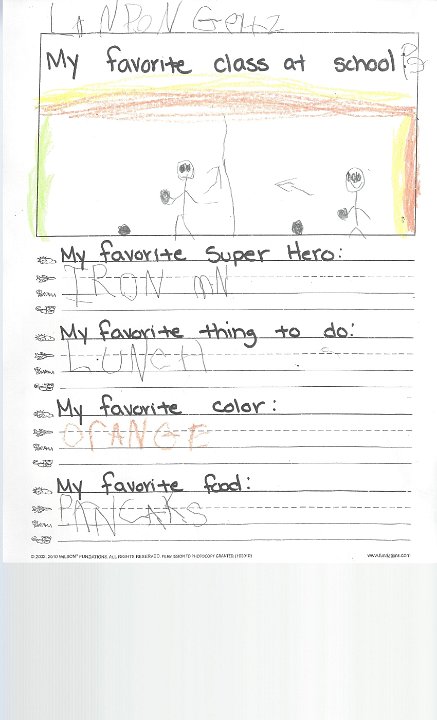 LANDON Getz
My favorite class at school:
My favorite Super Hero:
IRON mN
My favorite thing to do:
LUNCH
My favorite color:
OrANGE
My favorite food:
PANCAKS
ALL RIGHTS RESERVED.